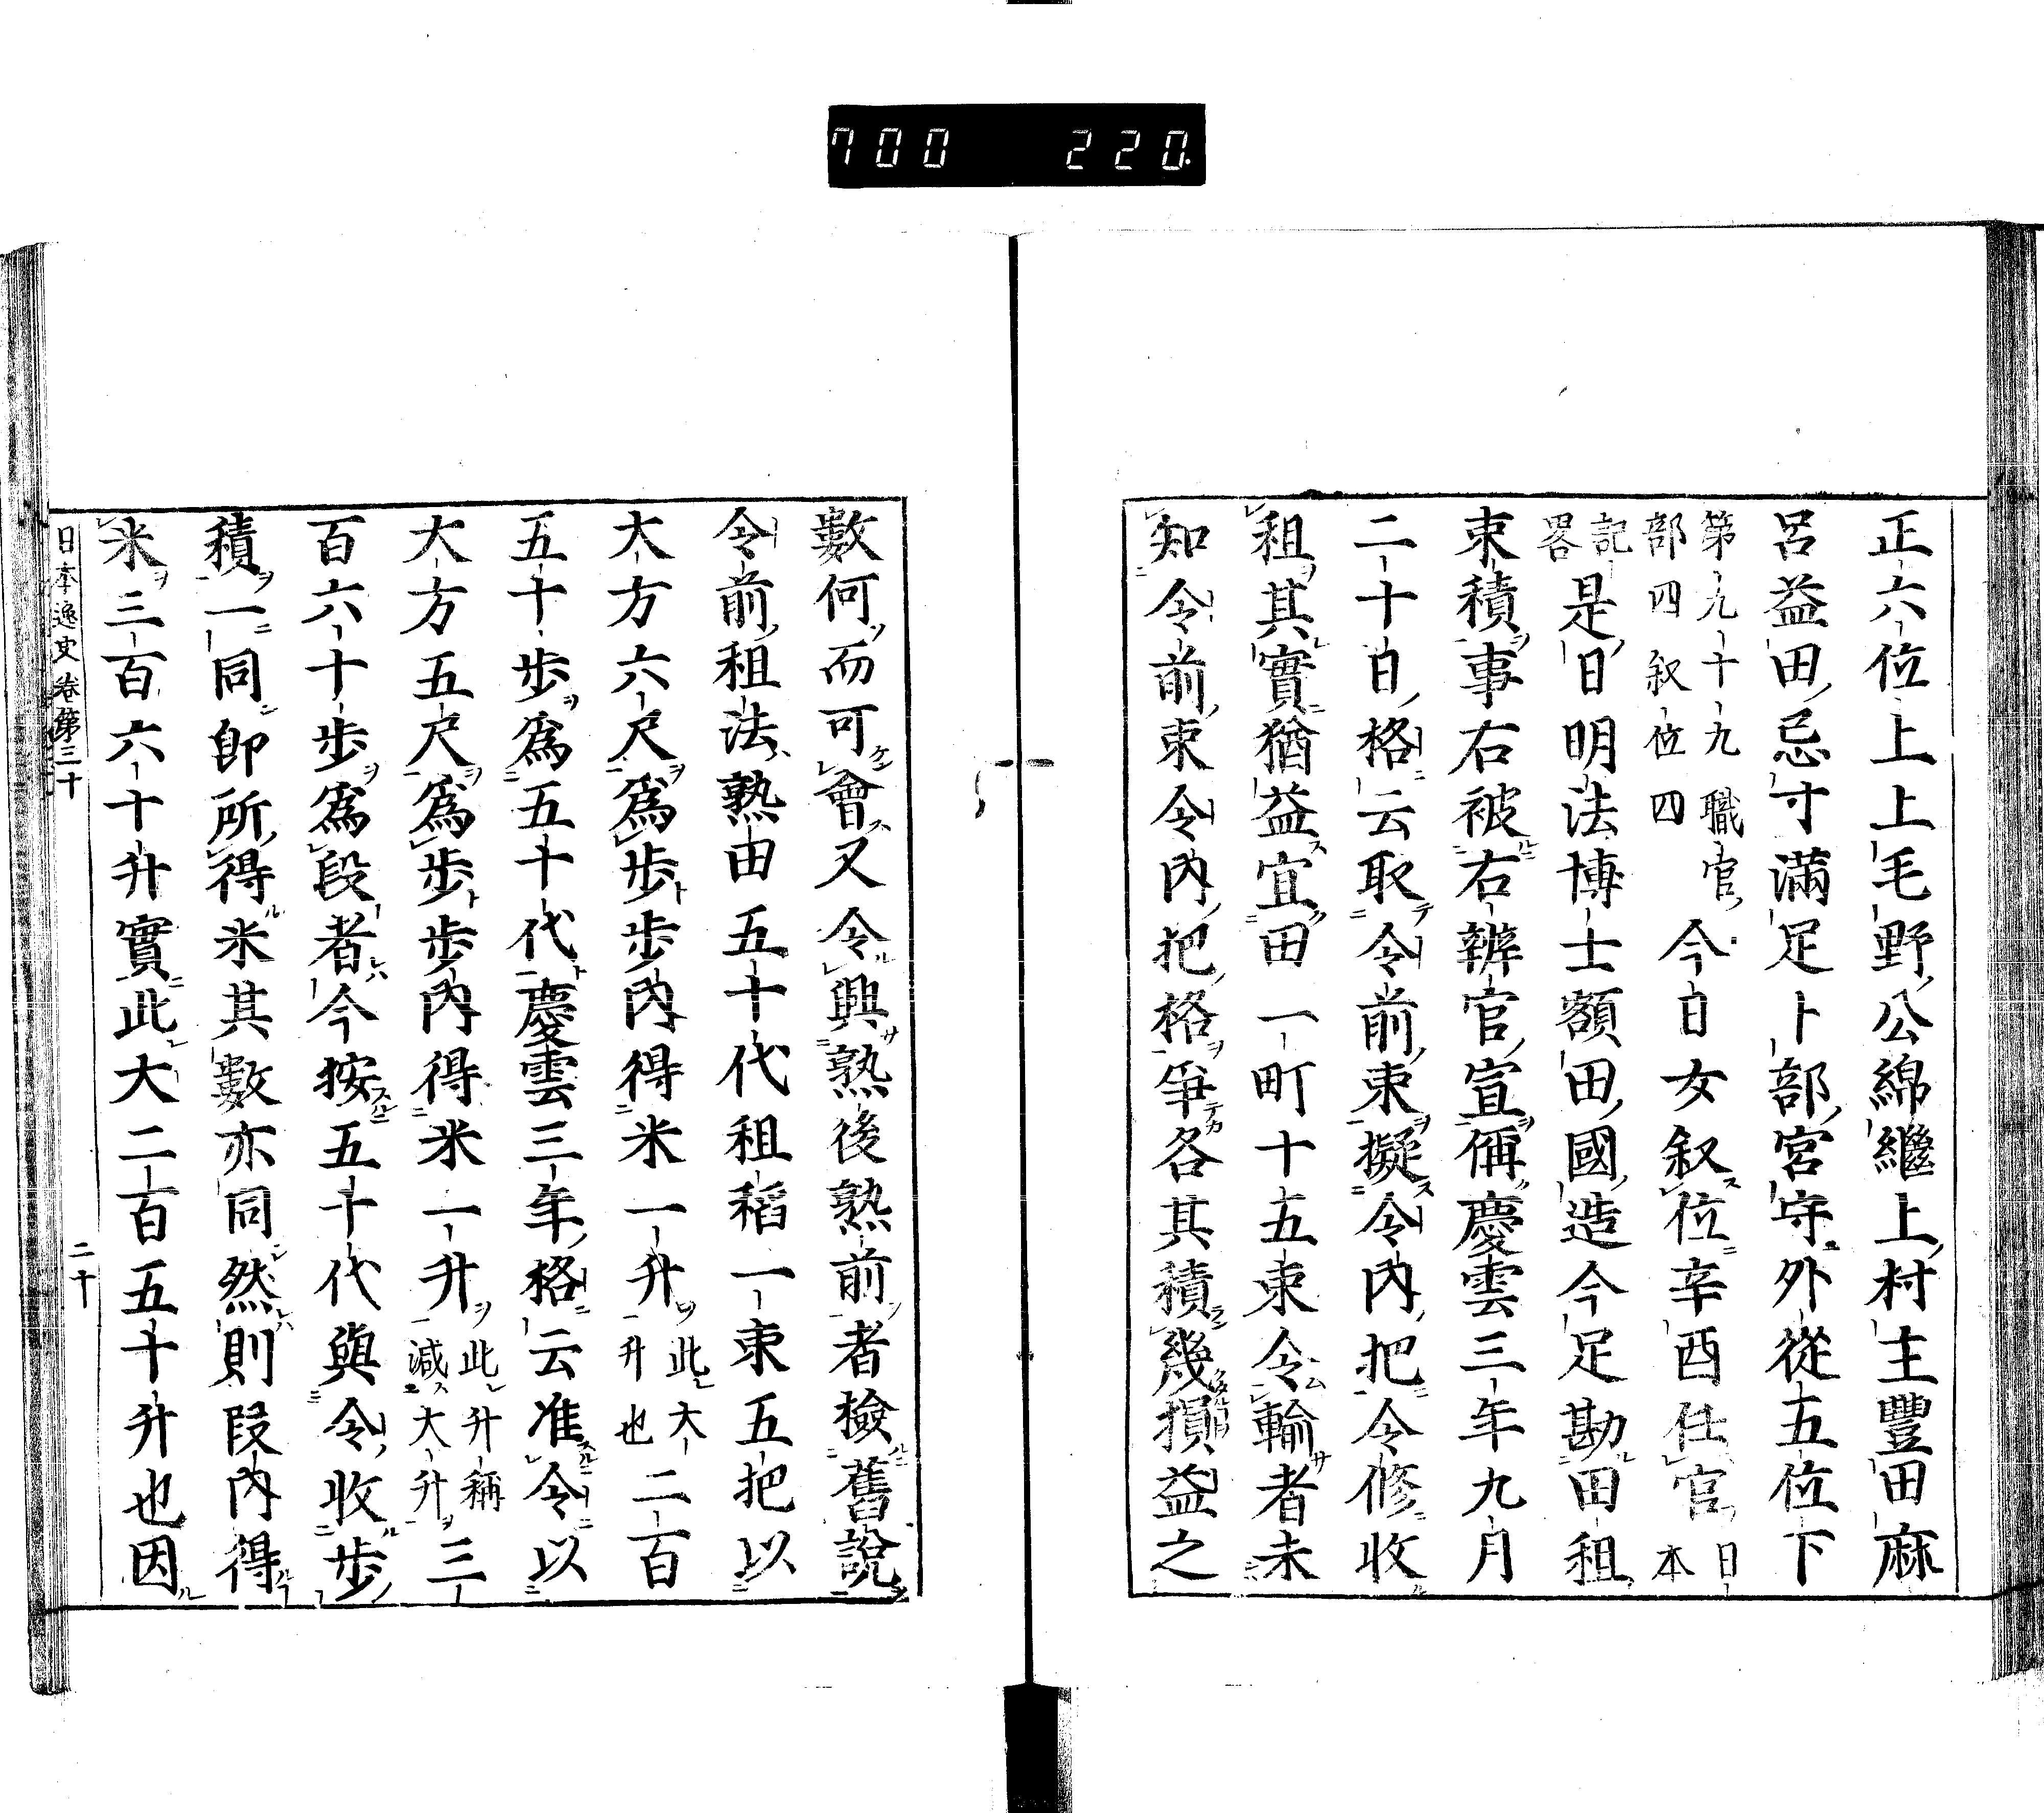 700 220
正六位上上毛野公綿繼上村主豐田麻
呂益田忌寸滿足卜部宮守外從五位下
第九十九職官部四叙位四今日女叙位辛酉任官日本
記畧是日明法博士額田國造今足勘田租
束積事右被右辨官宣偁慶雲三年九月
二十日格云取令前束擬令內把令修收
租其實猶益宜田一町十五束令輸者未
知令前束令內把格爭各其積幾損益之
數何而可會又令興熟後熟前者檢舊說
令前租法熟田五十代租稻一束五把以
大方六尺爲步步內得米一升此大升也二百
五十步爲五十代慶雲三年格云准令以
大方五尺爲步步內得米一升此升稱減大升三
百六十步爲段者今按五十代與令收步
積一同卽所得米其數亦同然則段內得
米三百六十升實此大二百五十升也因
日本逸史卷第三十 二十